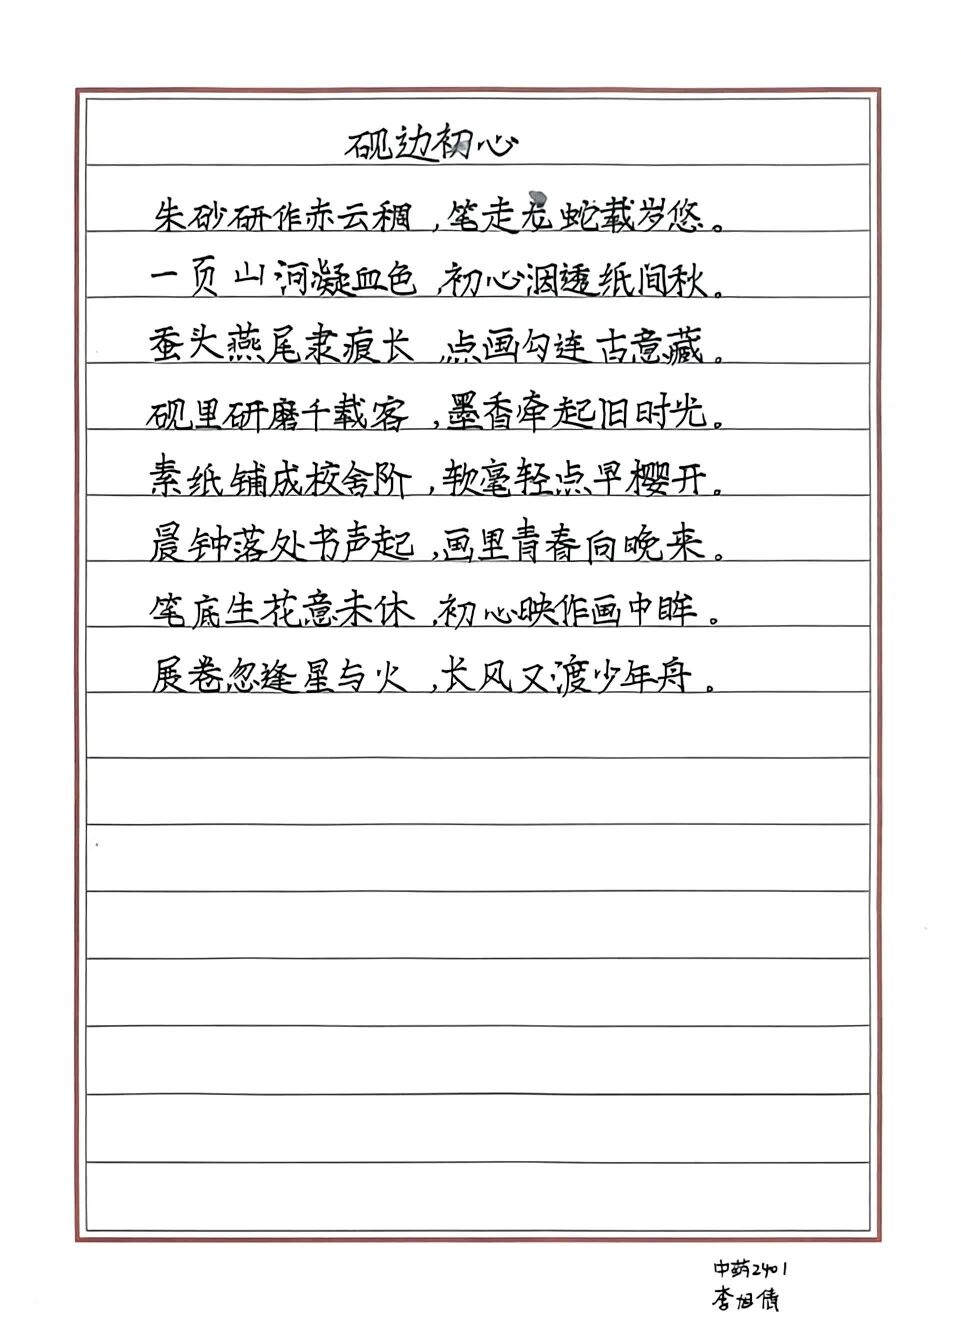 砚边初心
朱砂研作赤云稠,笔走龙蛇载岁悠。
一页山河凝血色,初心洇透纸间秋。
蚕头燕尾隶痕长,点画勾连古意藏。
砚里研磨千载客,墨香牵起旧时光。
素纸铺成校舍阶,软毫轻点早樱开。
晨钟落处书声起,画里青春向晚来。
笔底生花意未休,初心映作画中眸。
展卷忽逢星与火,长风又渡少年舟。
中药2401
李旭倩